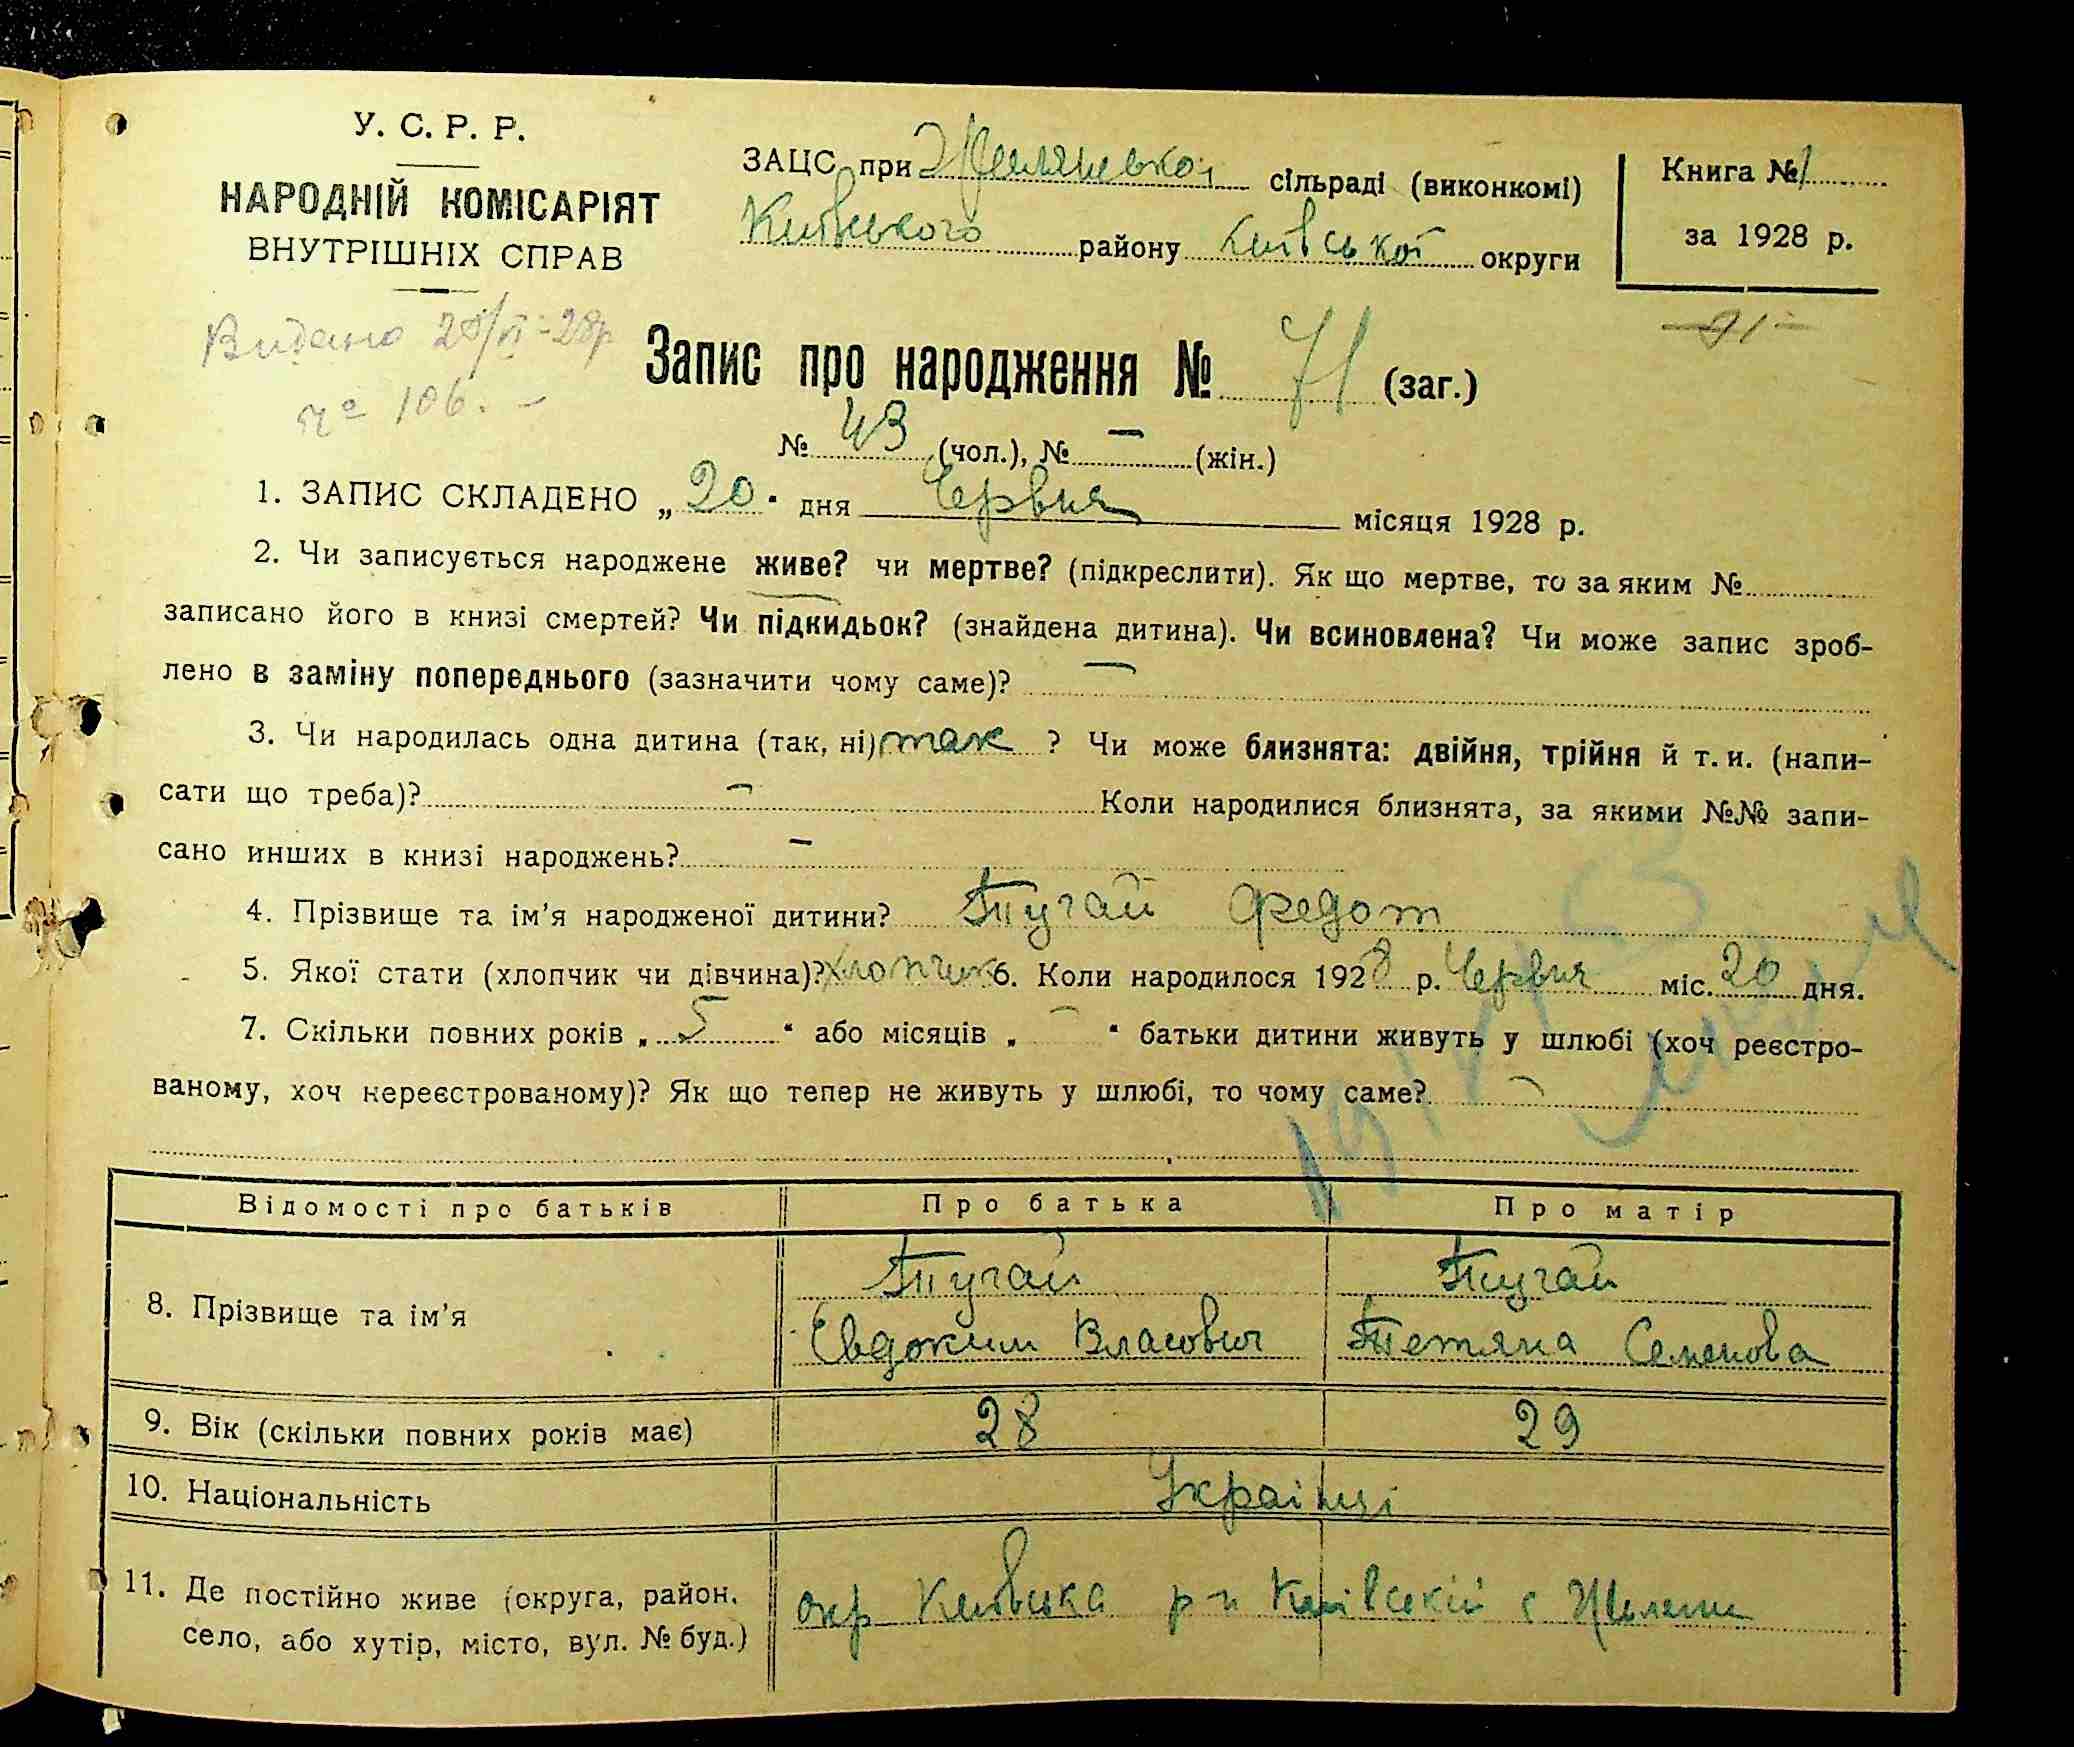 У. С. Р. Р.
НАРОДНІЙ КОМІСАРІЯТ
ВНУТРІШНІХ СПРАВ
ЗАЦС при Жилянської сільраді (виконкомі)
Київського району Київської округи
Книга № 1
за 1928 р.
Видано 20/VI-28р
№ 106. -
71
Запис про народження № 71 (заг.)
№ 43 (чол.), № — (жін.)
1. ЗАПИС СКЛАДЕНО „20" дня Червня місяця 1928 р.
2. Чи записується народжене живе? чи мертве? (підкреслити). Як що мертве, то за яким №
записано його в книзі смертей? Чи підкидьок? (знайдена дитина). Чи всиновлена? Чи може запис зроб-
лено в заміну попереднього (зазначити чому саме)? —
3. Чи народилась одна дитина (так, ні) так ? Чи може близнята: двійня, трійня й т. и. (напи-
сати що треба)? — Коли народилися близнята, за якими №№ запи-
сано инших в книзі народжень? —
4. Прізвище та ім'я народженої дитини? Тугай Федот
5. Якої стати (хлопчик чи дівчина)? хлопчик 6. Коли народилося 1928 р. Червня міс. 20 дня.
7. Скільки повних років „ 5 " або місяців „ — " батьки дитини живуть у шлюбі (хоч реєстро-
ваному, хоч нереєстрованому)? Як що тепер не живуть у шлюбі, то чому саме? —
Відомості про батьків Про батька Про матір
8. Прізвище та ім'я
Тугай Тугай
Евдоким Власович Тетяна Семенова
9. Вік (скільки повних років має) 28 29
10. Національність Українці
11. Де постійно живе (округа, район,
село, або хутір, місто, вул. № буд.)
окр Київська р-н Київський с Жиляни